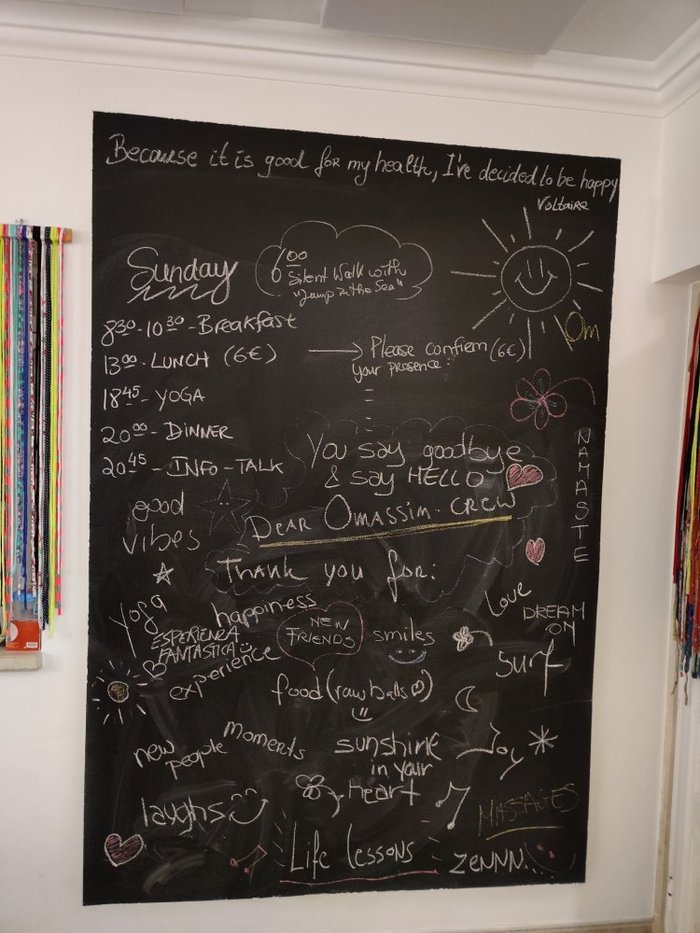 Because it is good for my health, I've decided to be happy
Voltaire
Sunday
6⁰⁰
Silent Walk with
"Jump in the Sea"
Om
8³⁰-10³⁰-Breakfast
13⁰⁰-LUNCH (6€) → Please confirm (6€)
your presence:
18⁴⁵-YOGA
20⁰⁰-DINNER
20⁴⁵-INFO-TALK
You say goodbye
& say HELLO
DEAR OMASSIM-CREW
THANK you for:
NAMASTE
good
vibes
yoga
happiness
ESPERIENZA
FANTASTICA
experience
NEW
FRIENDS
smiles
Love
DREAM
ON
surf
food (raw balls)
new
people
moments
sunshine
in your
heart
Joy
laughs
MASSAGES
Life lessons
ZENNN!